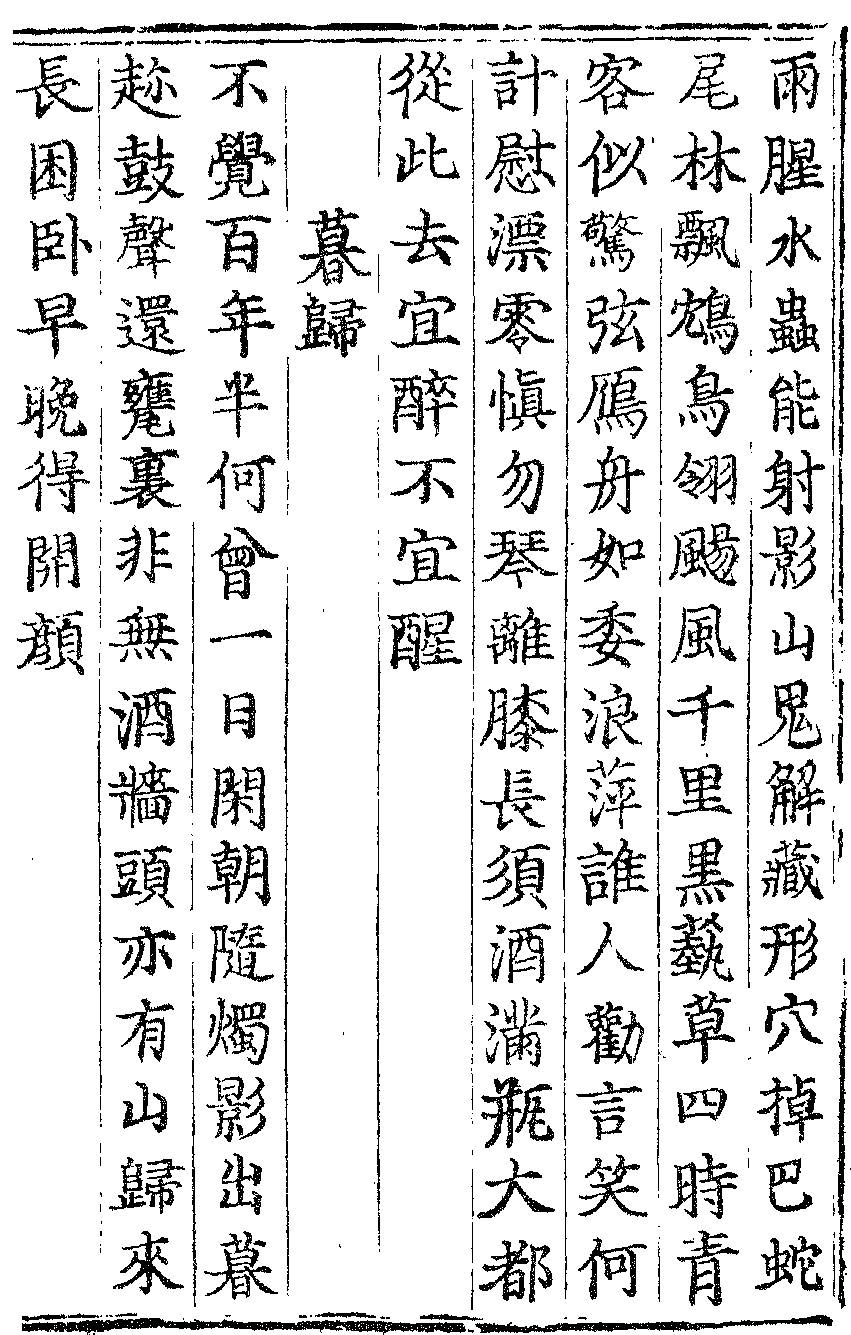 雨腥水蟲能射影山鬼解藏形穴掉巴蛇
尾林飄鴆鳥翎颺風千里黑蓺草四時青
客似驚弦鴈舟如委浪萍誰人勸言笑何
計慰漂零慎勿琴離膝長須酒滿瓶大都
從此去宜醉不宜醒
暮歸
不覺百年半何曾一日閑朝隨燭影出暮
趂鼓聲還甕裏非無酒牆頭亦有山歸來
長困卧早晚得開顔